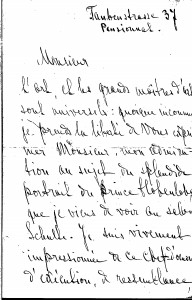 Taubenstrasse 37
Pensionnat.
Monsieur
L'art, et les grands maîtres d'art
sont universels : quoique inconnue
je prends la liberté de Vous expri
mer Monsieur, mon admira
tion au sujet du splendide
portrait du Prince Hohenlohe
que je viens de voir au salon
Schulte. Je suis vivement
impressionnée de ce chef d'œuvre
d'exécution, de ressemblance,